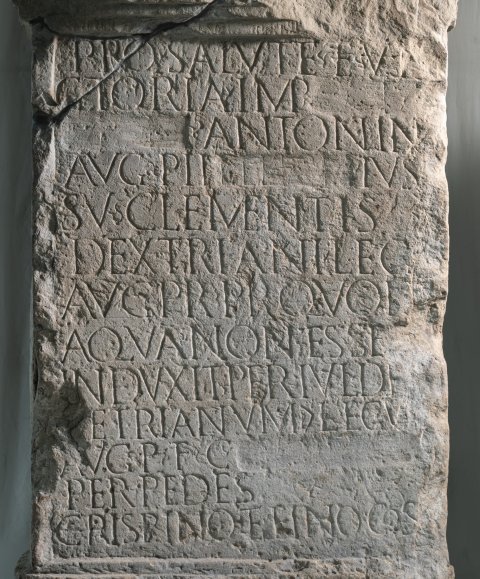 PRO·SALVTE·ET VI
CTORIA·IMP
ANTONIN
AVG·PII IVS
SVS·CLEMENTIS
DEXTRIANI·LEG
AVG·PR·PR·QVOD
AQVA·NON·ESSE
INDVXIT·PER·IVL·DE
ETRIANVM·> LEG VI
AVG·P·F·C
PER·PEDES
CRISPINO·ET LINO COS